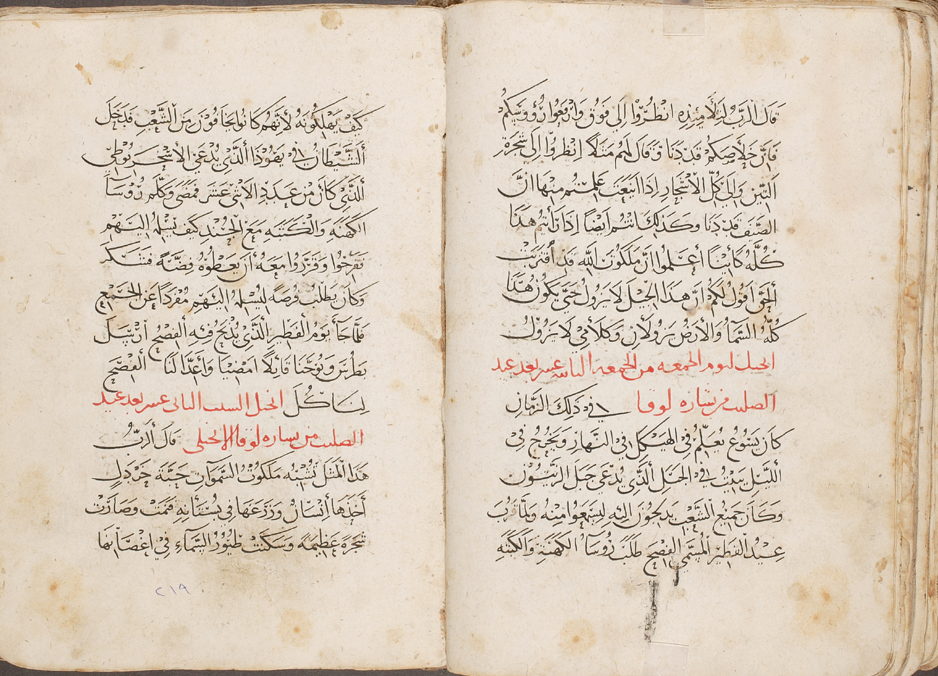 قَالَ الرَّبُّ لِتَلَامِيْذِهِ انْظُرُوْا إِلَى فَوْقُ وَارْفَعُوا رُؤُوسَكُمْ
فَإِنَّ خَلَاصَكُمْ قَدْ دَنَا وَقَالَ لَهُمْ مَثَلًا انْظُرُوا إِلَى شَجَرَةِ
التِّيْنِ وَإِلَى كُلِّ الْأَشْجَارِ إِذَا أَيْنَعَتْ عَلِمْتُمْ مِنْهَا أَنَّ
الصَّيْفَ قَدْ دَنَا وَكَذَلِكَ أَنْتُمْ أَيْضًا إِذَا رَأَيْتُمْ هَذَا
كُلَّهُ كَائِنًا أَعْلَمُوا أَنَّ مَلَكُوْتَ اللهِ قَدِ اقْتَرَبَتْ
الْحَقَّ أَقُوْلُ لَكُمْ إِنَّ هَذَا الْجِيْلَ لَا يَزُولُ حَتَّى يَكُوْنَ هَذَا
كُلُّهُ السَّمَآءُ وَالْأَرْضُ يَزُوْلَانِ وَكَلَامِي لَا يَزُوْلُ
انجيل ليوم الجمعه من الجمعه الثانيه عشر بعد عيد
الصليب من بشاره لوقا فِي ذَلِكَ الزَّمَانِ
كَانَ يَسُوْعُ يُعَلِّمُ فِي الْهَيْكَلِ فِي النَّهَارِ وَيَخْرُجُ فِي
اللَّيْلِ يَبِيْتُ فِي الْجَبَلِ الَّذِي يُدْعَى جَبَلَ الزَّيْتُوْنِ
وَكَانَ جَمِيْعُ الشَّعْبِ يُدْلِجُوْنَ إِلَيْهِ لِيَسْمَعُوا مِنْهُ وَلَمَّا قَرُبَ
عِيْدُ الْفَطِيْرِ الْمُسَمَّى الْفِصْحَ طَلَبَ رُؤَسَآءُ الْكَهَنَةِ وَالْكَتَبَةِ
كَيْفَ يُهْلِكُوْنَهُ لِأَنَّهُمْ كَانُوا يَخَافُوْنَ مِنَ الشَّعْبِ فَدَخَلَ
الشَّيْطَانُ فِي يَهُوْدَا الَّذِي يُدْعَى الْأَسْخَرْيُوْطِي
الَّذِي كَانَ مِنْ عَدَدِ الْاِثْنَيْ عَشَرَ فَمَضَى وَكَلَّمَ رُؤَسَآءَ
الْكَهَنَةِ وَالْكَتَبَةِ مَعَ الْجُنْدِ كَيْفَ يُسْلِمُهُ إِلَيْهِمْ
فَفَرِحُوا وَقَرَّرُوا مَعَهُ أَنْ يُعْطُوْهُ فِضَّةً فَشَكَرَ
وَكَانَ يَطْلُبُ فُرْصَةً لِيُسْلِمَهُ إِلَيْهِمْ مُفْرَدًا عَنِ الْجَمِيْعِ
فَلَمَّا جَآءَ يَوْمُ الْفَطِيْرِ الَّذِي يُذْبَحُ فِيْهِ الْفِصْحُ أَرْسَلَ
بُطْرُسَ وَيُوْحَنَّا قَائِلًا امْضِيَا وَأَعِدَّا لَنَا الْفِصْحَ
لِنَأْكُلَ انجيل السبت الثاني عشر بعد عيد
الصليب من بشاره لوقا الانجيلي قَالَ الرَّبُّ
هَذَا الْمَثَلَ تُشْبِهُ مَلَكُوْتُ السَّمَوَاتِ حَبَّةَ خَرْدَلٍ
أَخَذَهَا إِنْسَانٌ وَزَرَعَهَا فِي بُسْتَانِهِ فَنَمَتْ وَصَارَتْ
شَجَرَةً عَظِيْمَةً وَسَكَنَتْ طُيُوْرُ السَّمَآءِ فِي أَغْصَانِهَا
٢١٩